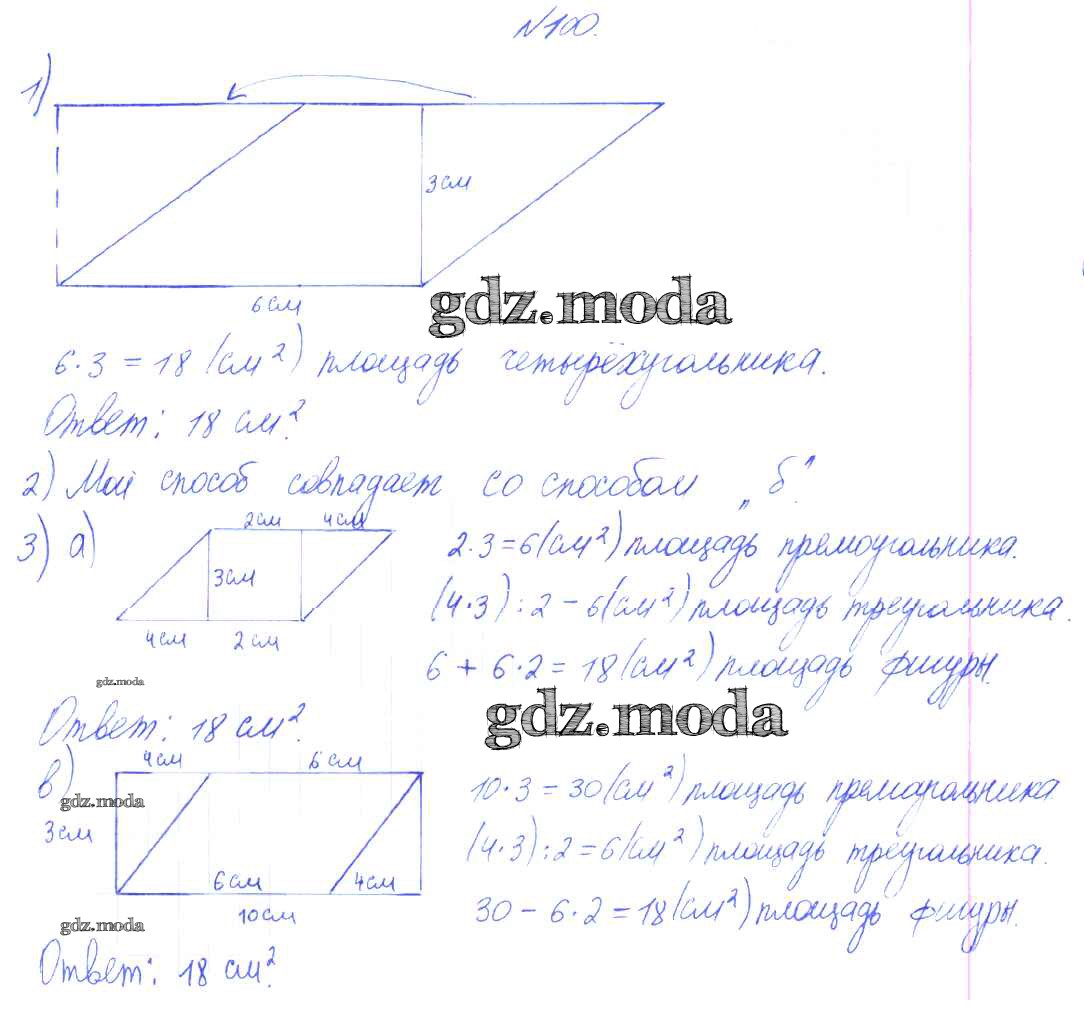 №100.
1)
3см
6см
gdz.moda
6·3 = 18 (см²) площадь четырёхугольника.
Ответ: 18 см².
2) Мой способ совпадает со способом „б".
3) а)
2см 4см
3см
4см 2см
2·3=6(см²) площадь прямоугольника.
(4·3):2–6(см²) площадь треугольника.
6 + 6·2 = 18(см²) площадь фигуры.
gdz.moda
gdz.moda
Ответ: 18 см².
в)
4см 6см
gdz.moda
3см
6см 4см
10см
gdz.moda
10·3=30(см²) площадь прямоугольника
(4·3):2=6(см²) площадь треугольника.
30–6·2=18(см²) площадь фигуры.
Ответ: 18 см².